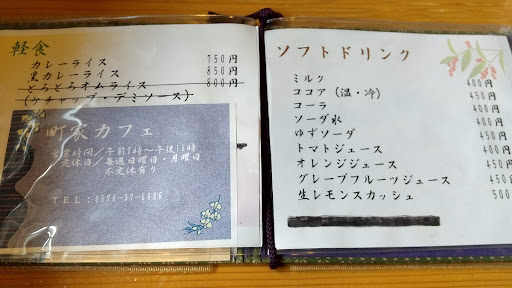 軽食
カレーライス 750円
黒カレーライス 850円
とろとろオムライス 800円
(ケチャップ・デミソース)
町家カフェ
営業時間/午前9時～午後16時
定休日/毎週日曜日・月曜日
不定休有り
TEL:0596-37-6686
ソフトドリンク
ミルク 400円
ココア(温・冷) 450円
コーラ 400円
ソーダ水 400円
ゆずソーダ 450円
トマトジュース 400円
オレンジジュース 450円
グレープフルーツジュース 450円
生レモンスカッシュ 500